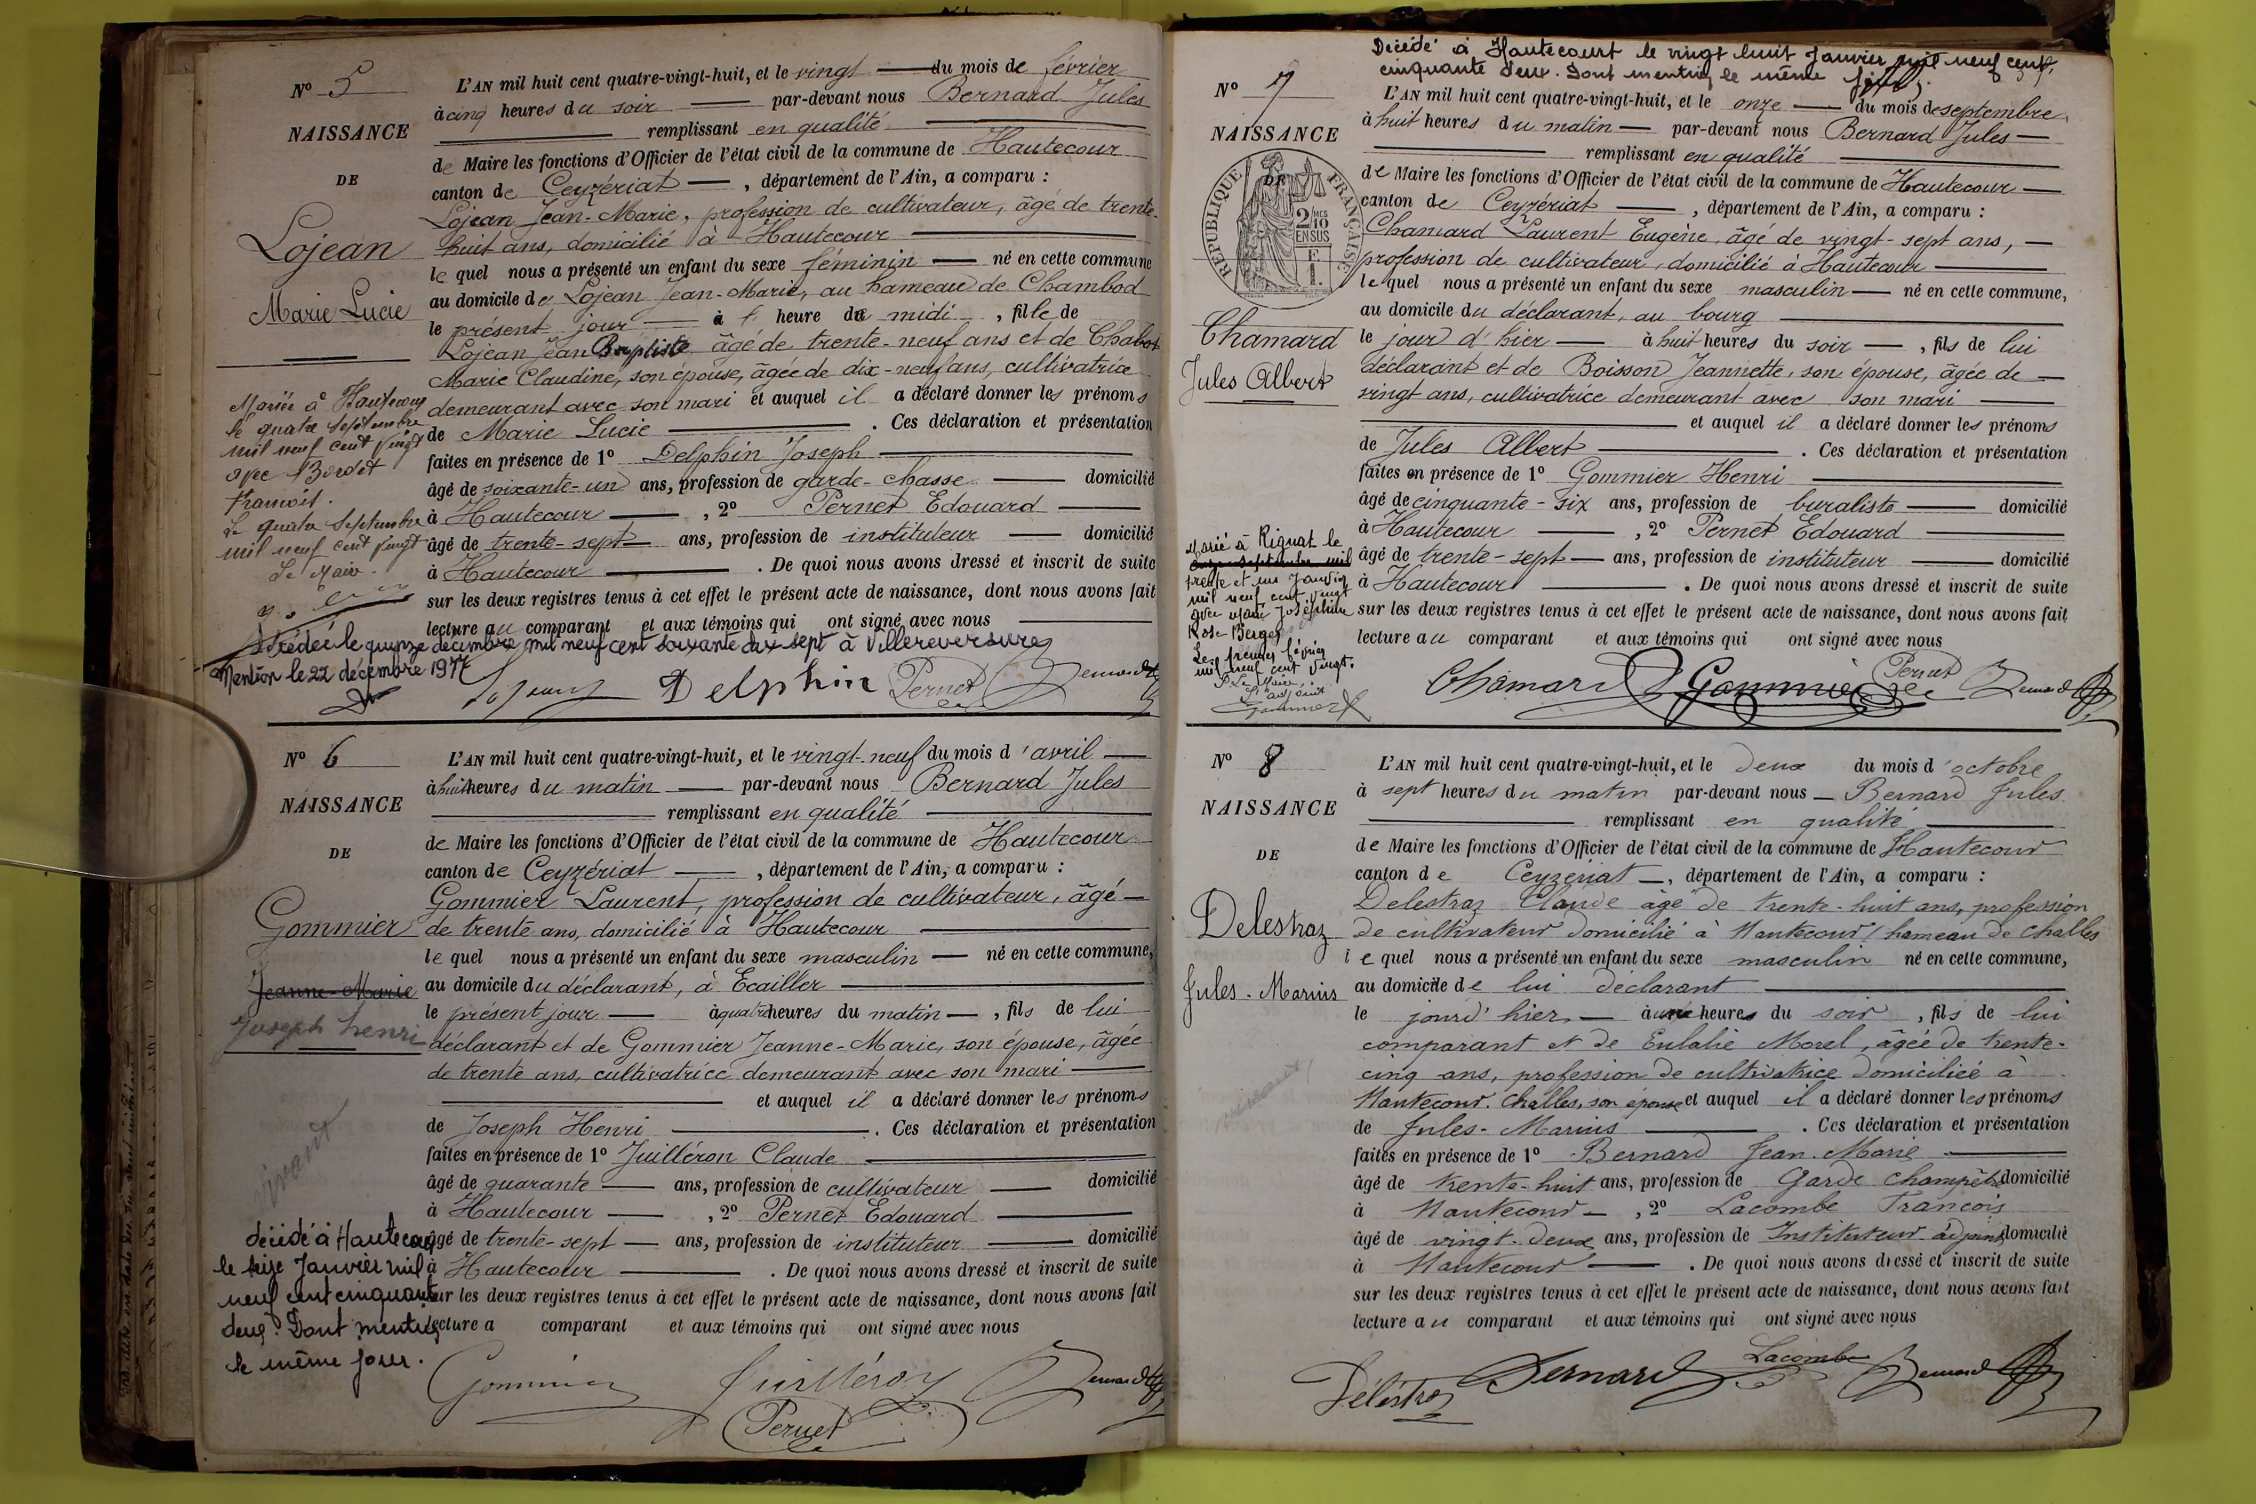 Nº 5
NAISSANCE
DE
Lojean
Marie Lucie
L'AN mil huit cent quatre-vingt-huit, et le vingt du mois de février
à cinq heures du soir par-devant nous Bernard Jules
remplissant en qualité
de Maire les fonctions d'Officier de l'état civil de la commune de Hautecour
canton de Ceyzériat, département de l'Ain, a comparu :
Lojean Jean-Marie, profession de cultivateur, âgé de trente-
huit ans, domicilié à Hautecour
lequel nous a présenté un enfant du sexe féminin né en cette commune
au domicile de Lojean Jean-Marie, au hameau de Chambod
le présent jour à heure de midi, fille de
Lojean Jean Baptiste âgé de trente-neuf ans et de Chabot
Marie Claudine, son épouse, âgée de dix-neuf ans, cultivatrice
demeurant avec son mari et auquel il a déclaré donner les prénoms
de Marie Lucie. Ces déclaration et présentation
faites en présence de 1º Delphin Joseph
âgé de soixante-un ans, profession de garde-chasse domicilié
à Hautecour, 2º Pernet Edouard
âgé de trente-sept ans, profession de instituteur domicilié
à Hautecour. De quoi nous avons dressé et inscrit de suite
sur les deux registres tenus à cet effet le présent acte de naissance, dont nous avons fait
lecture au comparant et aux témoins qui ont signé avec nous
Mariée à Hautecour
le quatre septembre
mil neuf cent vingt
avec Bordet
François.
Le quatre septembre
mil neuf cent vingt
Le Maire
Décédée le quinze décembre mil neuf cent soixante dix sept à Villereversure
Mention le 22 décembre 1977
Lojean Delphin Pernet Bernard
Nº 6
NAISSANCE
DE
Gommier
Jeanne-Marie
Joseph henri
L'AN mil huit cent quatre-vingt-huit, et le vingt-neuf du mois d'avril
à huit heures du matin par-devant nous Bernard Jules
remplissant en qualité
de Maire les fonctions d'Officier de l'état civil de la commune de Hautecour
canton de Ceyzériat, département de l'Ain, a comparu :
Gommier Laurent, profession de cultivateur, âgé
de trente ans, domicilié à Hautecour
lequel nous a présenté un enfant du sexe masculin né en cette commune,
au domicile du déclarant, à Ecailler
le présent jour à quatre heures du matin, fils de lui
déclarant et de Gommier Jeanne-Marie, son épouse, âgée
de trente ans, cultivatrice demeurant avec son mari
et auquel il a déclaré donner les prénoms
de Joseph Henri. Ces déclaration et présentation
faites en présence de 1º Juilléron Claude
âgé de quarante ans, profession de cultivateur domicilié
à Hautecour, 2º Pernet Edouard
âgé de trente-sept ans, profession de instituteur domicilié
à Hautecour. De quoi nous avons dressé et inscrit de suite
sur les deux registres tenus à cet effet le présent acte de naissance, dont nous avons fait
lecture a comparant et aux témoins qui ont signé avec nous
vivant
décédé à Hautecour
le seize Janvier mil
neuf cent cinquante
deux. Dont mention
le même jour.
Gommier Juilléron Bernard
Pernet
Décédé à Hautecourt le vingt huit Janvier mil neuf cent
cinquante deux. Dont mention le même jour.
Nº 7
NAISSANCE
DE
RÉPUBLIQUE FRANÇAISE
2/10 MES
EN SUS
F
1.
Chamard
Jules Albert
L'AN mil huit cent quatre-vingt-huit, et le onze du mois de septembre
à huit heures du matin par-devant nous Bernard Jules
remplissant en qualité
de Maire les fonctions d'Officier de l'état civil de la commune de Hautecour
canton de Ceyzériat, département de l'Ain, a comparu :
Chamard Laurent Eugène, âgé de vingt-sept ans,
profession de cultivateur, domicilié à Hautecour
lequel nous a présenté un enfant du sexe masculin né en cette commune,
au domicile du déclarant, au bourg
le jour d'hier à huit heures du soir, fils de lui
déclarant et de Boisson Jeannette, son épouse, âgée de
vingt ans, cultivatrice demeurant avec son mari
et auquel il a déclaré donner les prénoms
de Jules Albert. Ces déclaration et présentation
faites en présence de 1º Gommier Henri
âgé de cinquante-six ans, profession de buraliste domicilié
à Hautecour, 2º Pernet Edouard
âgé de trente-sept ans, profession de instituteur domicilié
à Hautecour. De quoi nous avons dressé et inscrit de suite
sur les deux registres tenus à cet effet le présent acte de naissance, dont nous avons fait
lecture au comparant et aux témoins qui ont signé avec nous
Marié à Rignat le
onze septembre mil
trente et un Janvier
mil neuf cent vingt
avec Marie Joséphine
Rose Berger
Le premier février
mil neuf cent vingt.
P. Le Maire
L'adjoint
Gommier
Chamard Gommier Pernet Bernard
Nº 8
NAISSANCE
DE
Delestraz
Jules-Marius
L'AN mil huit cent quatre-vingt-huit, et le deux du mois d'octobre
à sept heures du matin par-devant nous Bernard Jules
remplissant en qualité
de Maire les fonctions d'Officier de l'état civil de la commune de Hautecour
canton de Ceyzériat, département de l'Ain, a comparu :
Delestraz Claude âgé de trente-huit ans, profession
de cultivateur domicilié à Hautecour, hameau de Challes
lequel nous a présenté un enfant du sexe masculin né en cette commune,
au domicile de lui déclarant
le jourd'hier à une heures du soir, fils de lui
comparant et de Eulalie Morel, âgée de trente-
cinq ans, profession de cultivatrice domiciliée à
Hautecour. Challes, son épouse et auquel il a déclaré donner les prénoms
de Jules-Marius. Ces déclaration et présentation
faites en présence de 1º Bernard Jean-Marie
âgé de trente-huit ans, profession de Garde champêtre domicilié
à Hautecour, 2º Lacombe François
âgé de vingt-deux ans, profession de Instituteur adjoint domicilié
à Hautecour. De quoi nous avons dressé et inscrit de suite
sur les deux registres tenus à cet effet le présent acte de naissance, dont nous avons fait
lecture au comparant et aux témoins qui ont signé avec nous
Délestraz Bernard Lacombe Bernard